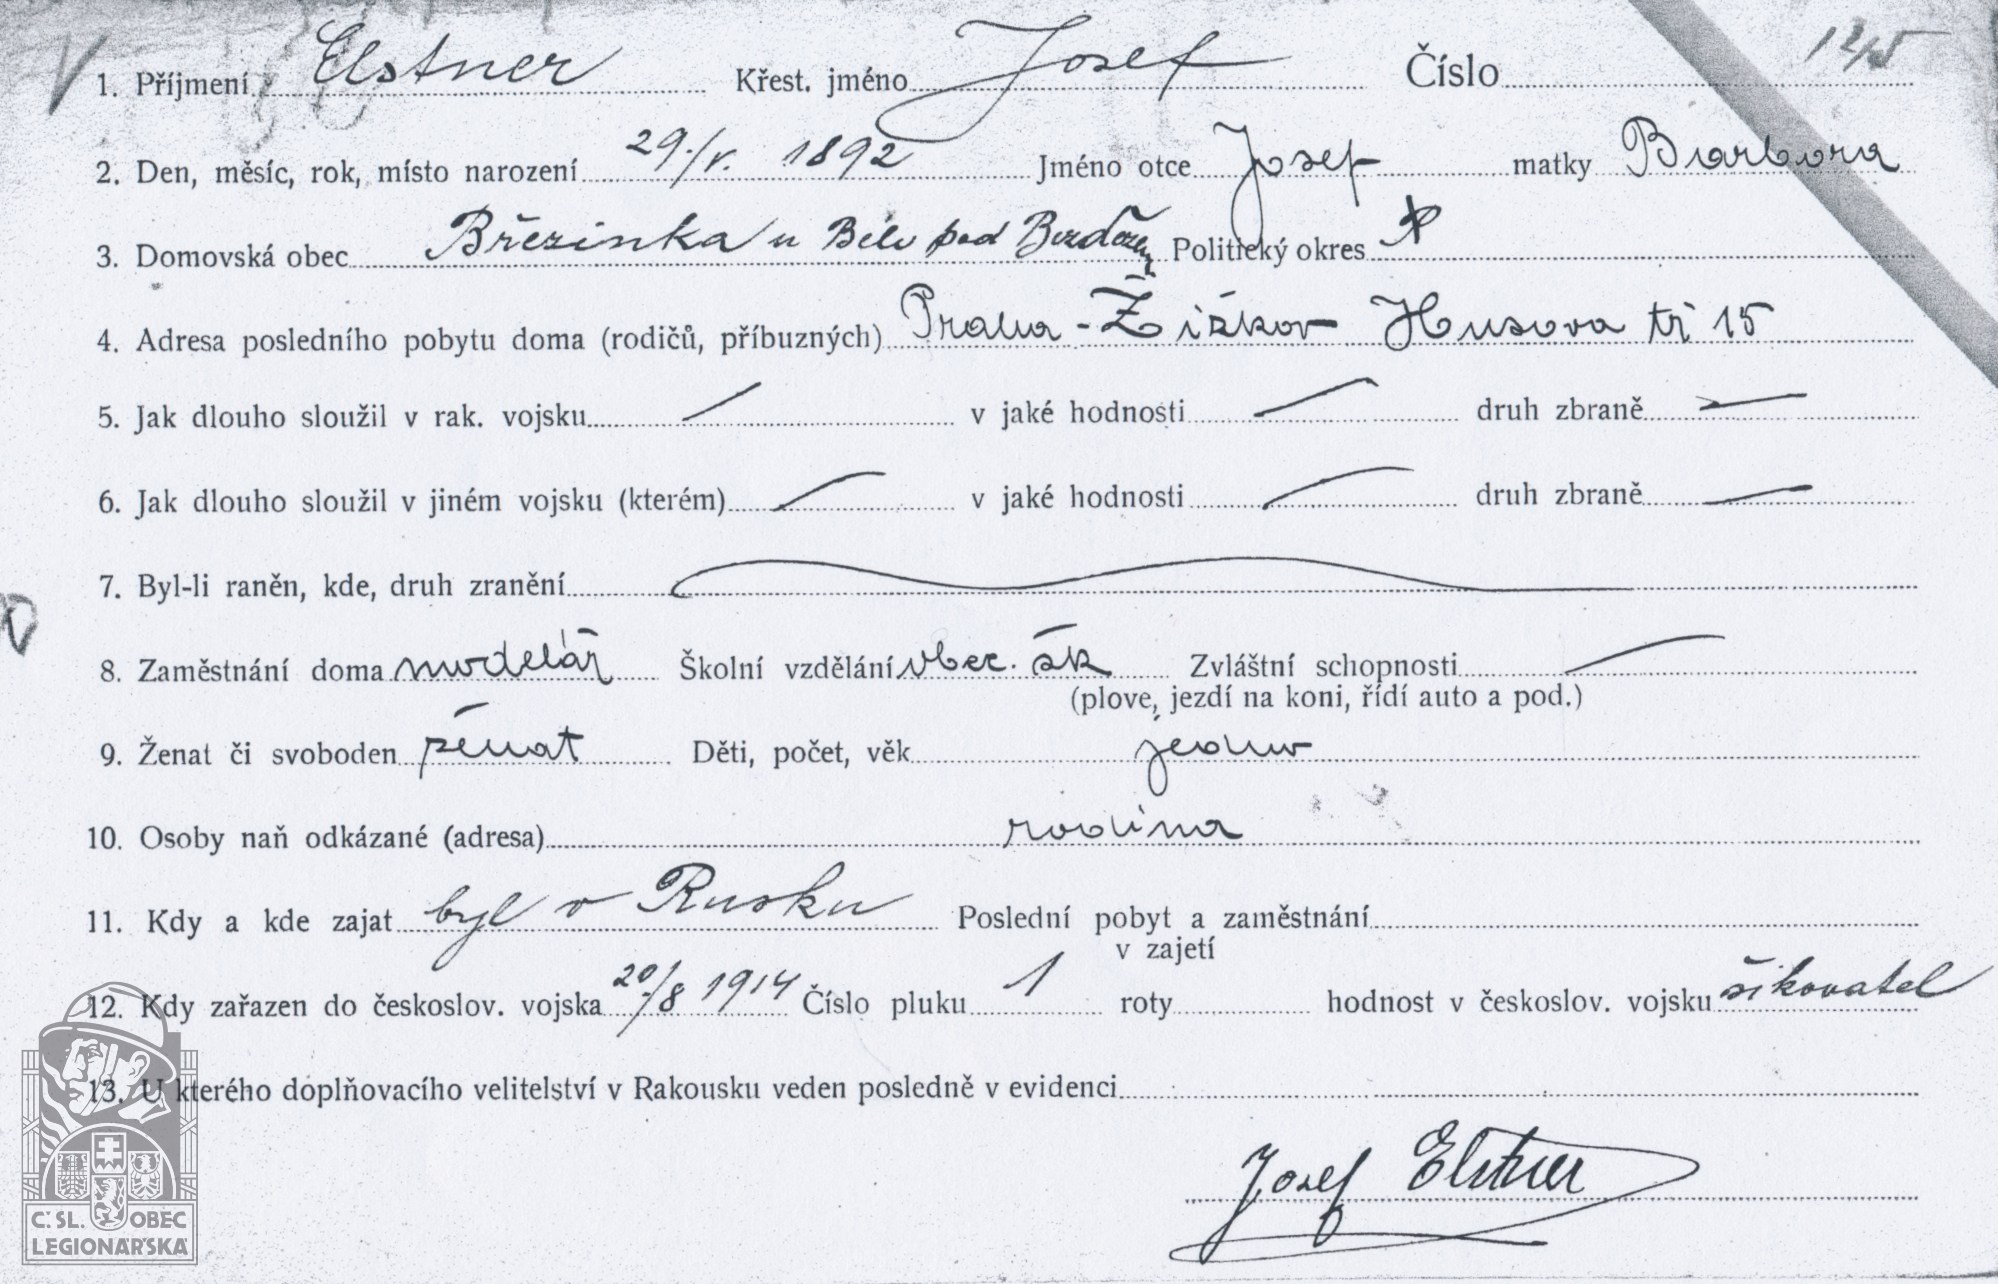 1. Příjmení Elstner Křest. jméno Josef Číslo
2. Den, měsíc, rok, místo narození 29./V. 1892 Jméno otce Josef matky Barbora
3. Domovská obec Březinka u Bělé pod Bezdězem Politický okres
4. Adresa posledního pobytu doma (rodičů, příbuzných) Praha - Žižkov Husova tř 15
5. Jak dlouho sloužil v rak. vojsku v jaké hodnosti druh zbraně
6. Jak dlouho sloužil v jiném vojsku (kterém) v jaké hodnosti druh zbraně
7. Byl-li raněn, kde, druh zranění
8. Zaměstnání doma modelář Školní vzdělání obec. šk Zvláštní schopnosti
(plove, jezdí na koni, řídí auto a pod.)
9. Ženat či svoboden ženat Děti, počet, věk jedno
10. Osoby naň odkázané (adresa) rodina
11. Kdy a kde zajat byl v Rusku Poslední pobyt a zaměstnání
v zajetí
12. Kdy zařazen do českoslov. vojska 20/8 1914 Číslo pluku 1 roty hodnost v českoslov. vojsku šikovatel
13. U kterého doplňovacího velitelství v Rakousku veden posledně v evidenci
Josef Elstner
Č. SL. OBEC
LEGIONÁŘSKÁ